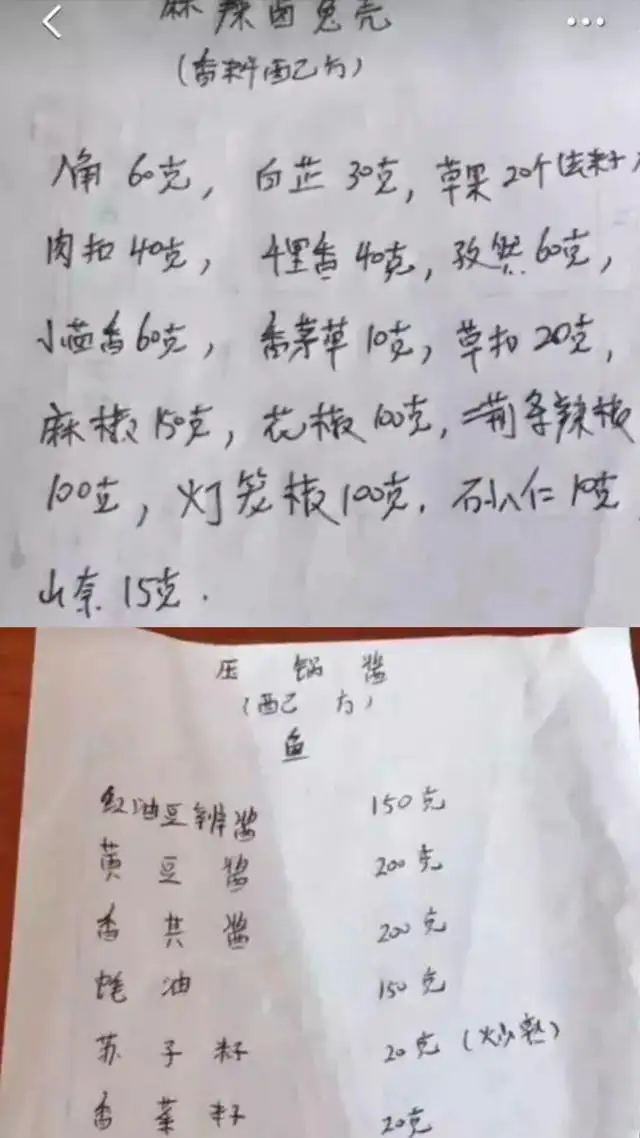 麻辣卤兔壳
(香料配方)
八角60克，白芷30克，草果20个(去籽)
肉扣40克，千里香40克，孜然60克，
小茴香60克，香茅草10克，草扣20克，
麻椒150克，花椒100克，二荆条辣椒
100克，灯笼椒100克.砂仁10克
山奈15克.
压锅酱
(配方)
鱼
红油豆辨酱 150克
黄豆酱 200克
香其酱 200克
蚝油 150克
苏子籽 20克(炒熟)
香菜籽 20克